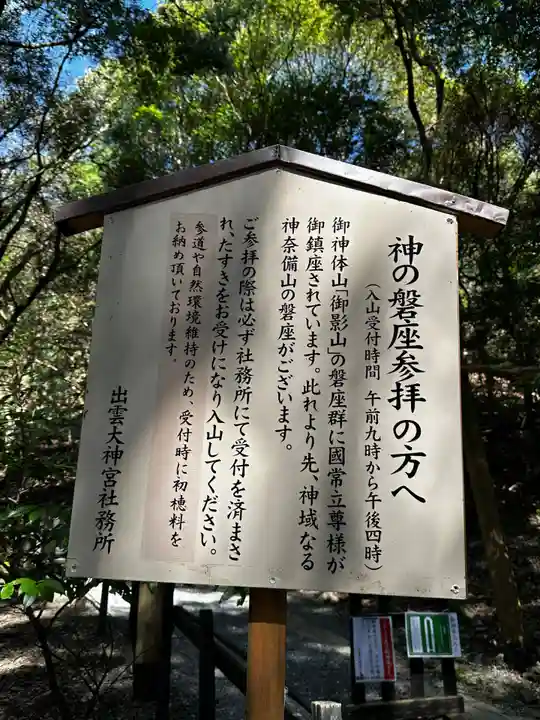 神の磐座参拝の方へ
(入山受付時間 午前九時から午後四時)
御神体山「御影山」の磐座群に國常立尊様が
御鎮座されています。此れより先、神域なる
神奈備山の磐座がございます。
ご参拝の際は必ず社務所にて受付を済まさ
れ、たすきをお受けになり入山してください。
参道や自然環境維持のため、受付時に初穂料を
お納め頂いております。
出雲大神宮社務所